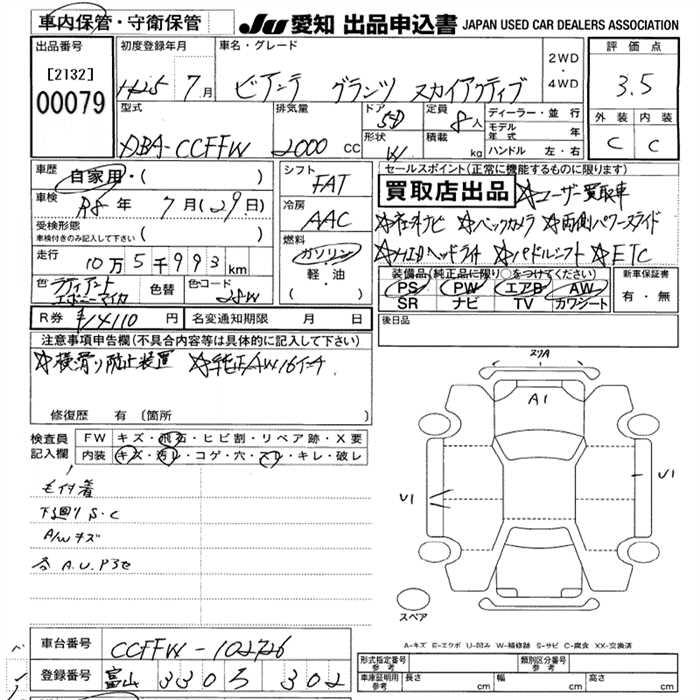 車内保管・守衛保管
JU 愛知 出品申込書 JAPAN USED CAR DEALERS ASSOCIATION
出品番号
[2132]
00079
初度登録年月
H25 7月
車名・グレード
ビアンテ グランツ スカイアクティブ
2WD
・
4WD
評価点
3.5
外装 内装
C C
型式
DBA-CCFFW
排気量
2000 cc
ドア
5D
形状
W
定員
8人
積載
kg
ディーラー・並行
モデル年式 年
ハンドル 左・右
車歴
自家用・( )
車検
R8年 7月(29日)
受検形態
車検付きのみ記入して下さい ( )
走行
10万5千993km
色 ラディアントエボニーマイカ
色替
色コード
28W
シフト
FAT
冷房
AAC
燃料
ガソリン・
軽・油
( )
セールスポイント(正常に機能するものに限ります)
買取店出品 ☆ユーザー買取車
☆社外ナビ ☆バックカメラ ☆両側パワースライド
☆HIDヘッドライト ☆パドルシフト ☆ETC
装備品(純正品に限り○をつけてください)
PS PW エアB AW
SR ナビ TV カワシート
新車保証書
有・無
R券 ¥14110円
名変通知期限 月 日
後日品
注意事項申告欄(不具合内容等は具体的に記入して下さい)
☆横滑り防止装置 ☆純正AW16インチ
修復歴 有 (箇所
検査員
記入欄
FW キズ・飛石・ヒビ割・リペア跡・X要
内装 キズ・汚レ・コゲ・穴・スレ・キレ・破レ
モイ付着
下廻りS・C
A/Wキズ
A.U.P3セ
スリA
A1
U1
U1
スペア
A-キズ E-エクボ U-凹み W-補修跡 S-サビ C-腐食 XX-交換済
車台番号
CCFFW-102726
登録番号
富山 330 ろ 302
形式指定番号
参考
類別区分番号
参考
車庫証明用
参考
長さ cm
幅 cm
高さ cm